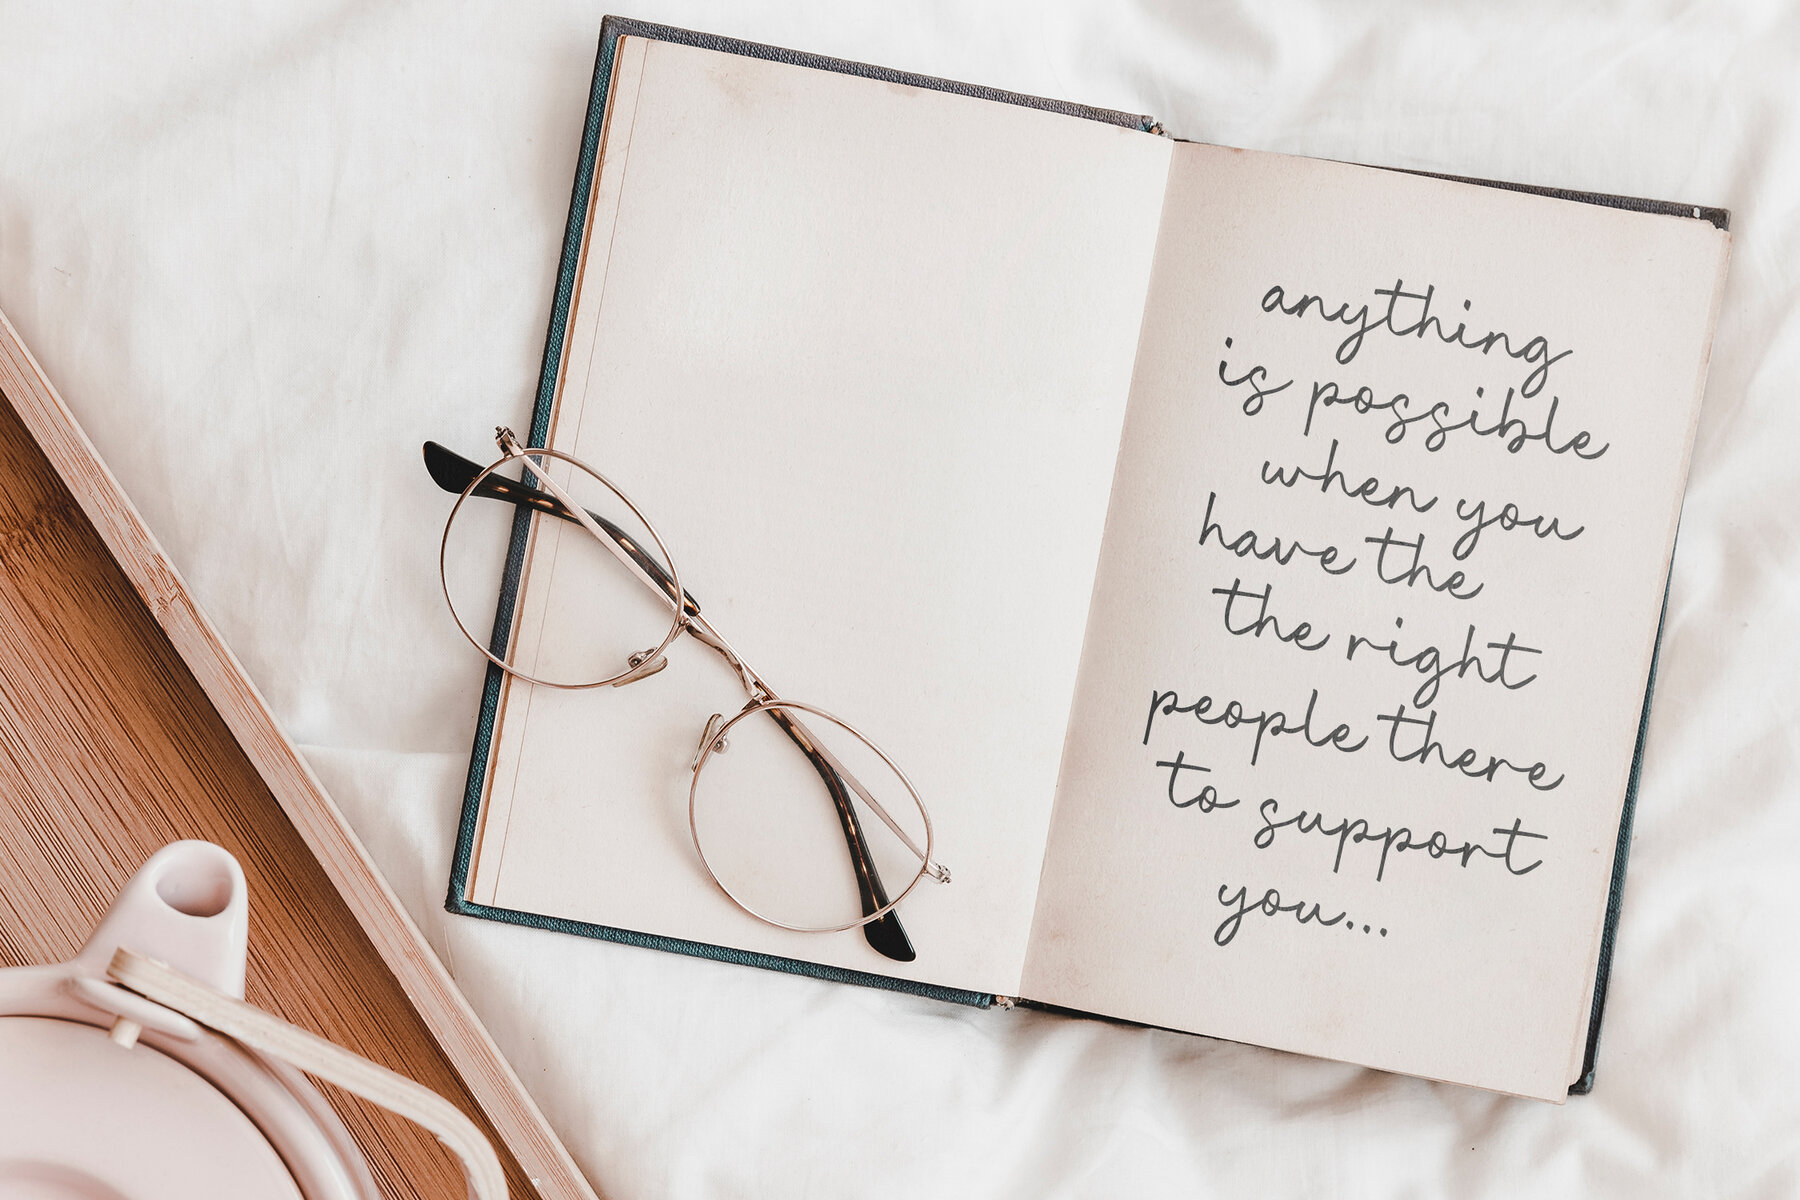 anything
is possible
when you
have the
the right
people there
to support
you...